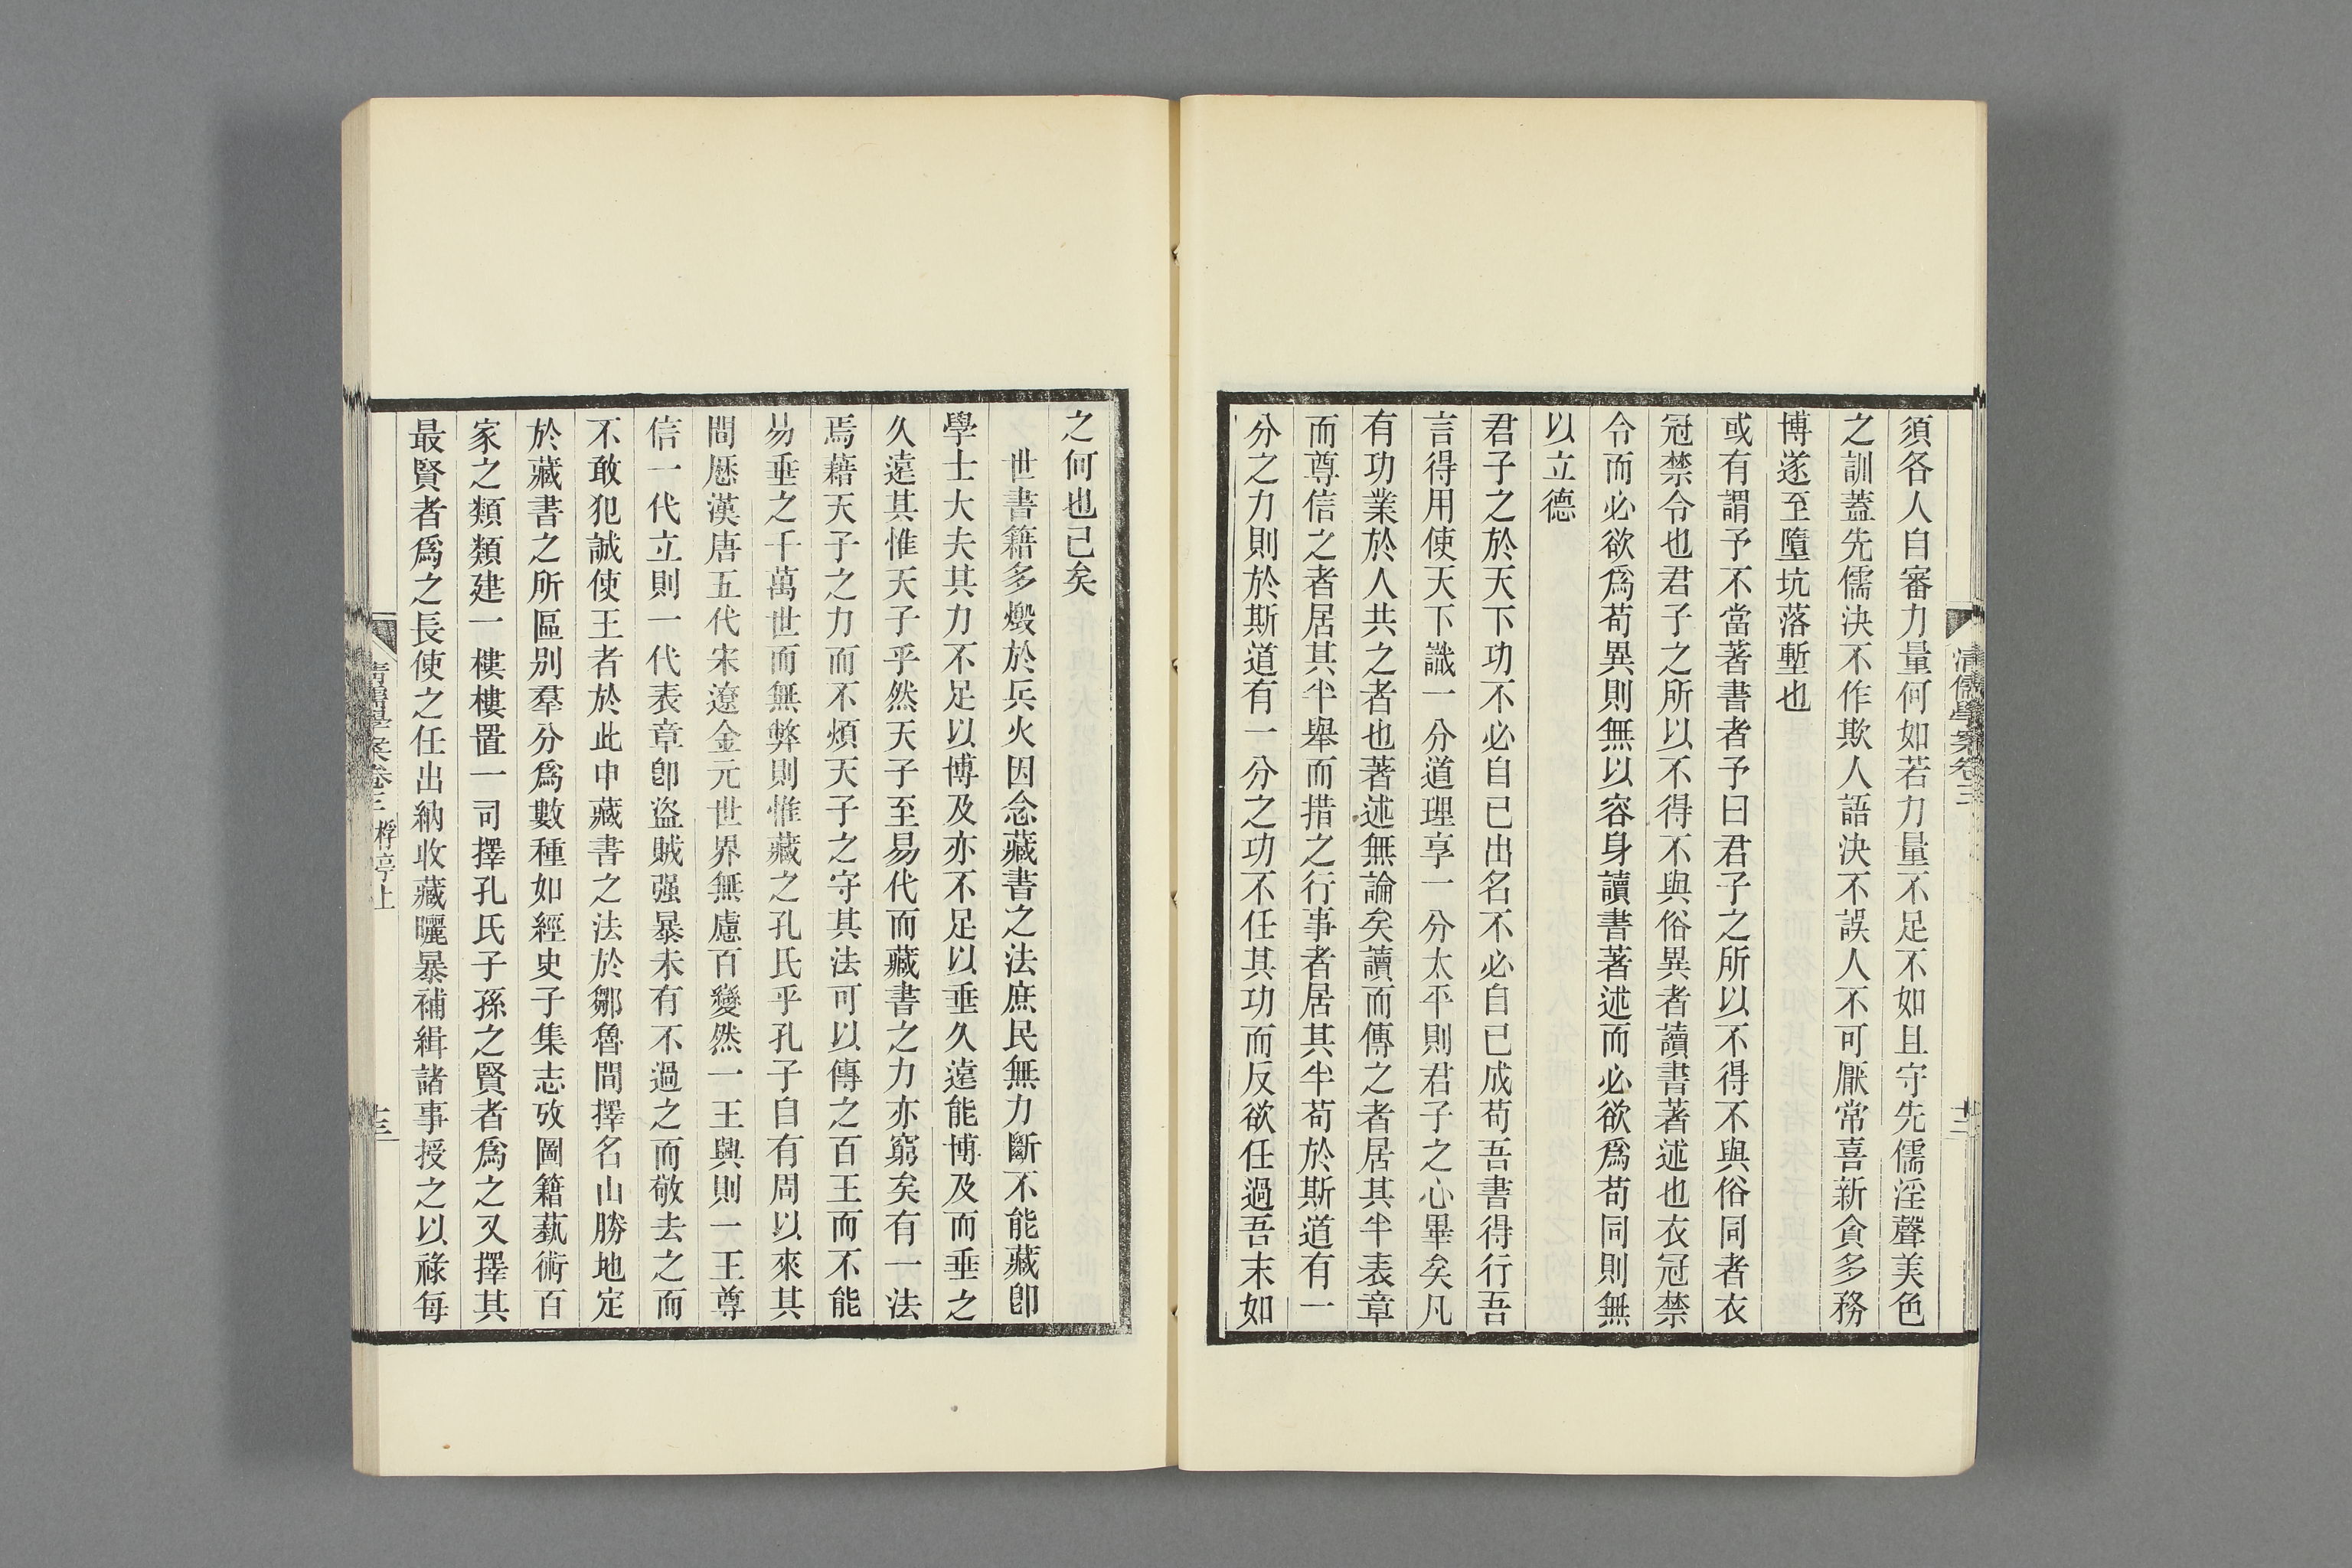 清儒學案卷三
十二
須各人自審力量何如若力量不足不如且守先儒淫聲美色
之訓蓋先儒決不作欺人語決不誤人不可厭常喜新貪多務
博遂至墮坑落塹也
或有謂予不當著書者予曰君子之所以不得不與俗同者衣
冠禁令也君子之所以不得不與俗異者讀書著述也衣冠禁
令而必欲爲苟異則無以容身讀書著述而必欲爲苟同則無
以立德
君子之於天下功不必自已出名不必自已成苟吾書得行吾
言得用使天下識一分道理享一分太平則君子之心畢矣凡
有功業於人共之者也著述無論矣讀而傳之者居其半表章
而尊信之者居其半舉而措之行事者居其半苟於斯道有一
分之力則於斯道有一分之功不任其功而反欲任過吾末如
之何也已矣
世書籍多燬於兵火因念藏書之法庶民無力斷不能藏卽
學士大夫其力不足以博及亦不足以垂久遠能博及而垂之
久遠其惟天子乎然天子至易代而藏書之力亦窮矣有一法
焉藉天子之力而不煩天子之守其法可以傳之百王而不能
易垂之千萬世而無弊則惟藏之孔氏乎孔子自有周以來其
間歷漢唐五代宋遼金元世界無慮百變然一王興則一王尊
信一代立則一代表章卽盜賊强暴未有不過之而敬去之而
不敢犯誠使王者於此申藏書之法於鄒魯間擇名山勝地定
於藏書之所區別羣分爲數種如經史子集志攷圖籍藝術百
家之類類建一樓樓置一司擇孔氏子孫之賢者爲之又擇其
最賢者爲之長使之任出納收藏曬暴補緝諸事授之以祿每
清儒學案卷三 桴亭上
十三